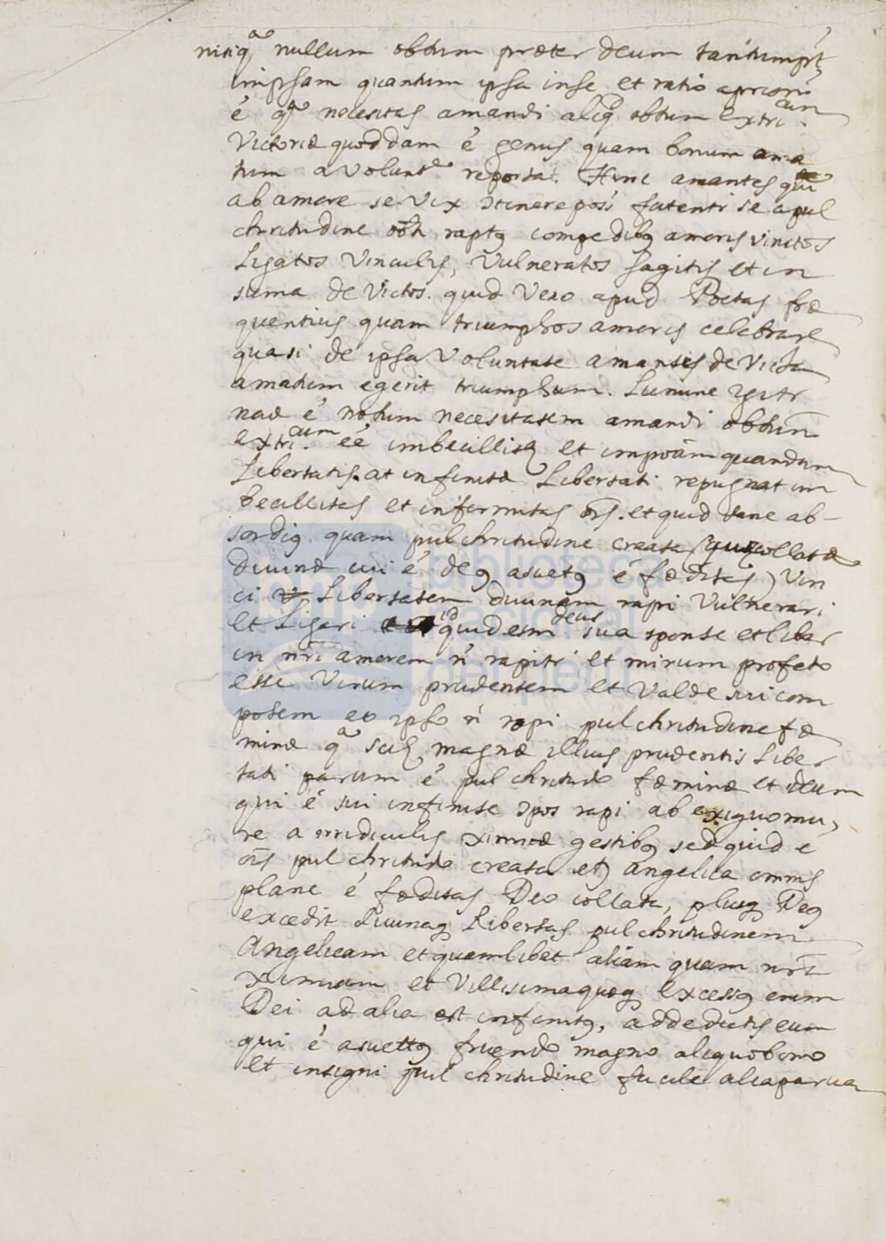 nullum obtum præter deum tantum
impsam quantum ipsa inse et ratio a priori
é necesitas amandi aliq obtum extri.cum
Victoriæ quoddam é genus quam bonum ama
tum a Volunte reportat. Hinc amantes
ab amore se Vix fatenti se a pul
chritudine obti raptq compedibq amoris vinctos
Ligatos Vinculis, Vulneratos sagitis et in
suma de Victos. quid Vero apud Poetas fræ
quentius quam triumphos amoris celebrare
quasi de ipsa Voluntate amantis de Victa
amatum egerit triumphum. Lumine igitr
nae é notum necesitatem amandi obtum
extri.cum eé imbecillitq et quandam
Libertatis. at infinitæ Libertati repugnat im
becillitas et infirmitas ois. et quid sane ab-
sordiq quam pulchritudine creata (quæ collata
divinæ cui é deq asuetq é fæditas) Vin
ci Libertatem divinam rapi Vulnerari
et Ligari id quidem deus sua sponte et liber
in nri amorem ñ rapitr et mirum profeto
esse Virum prudentem et Valde sui com
potem eo ipso ñ rapi pulchritudine fæ
minæ qa scil magnæ illius prudentis Liber
tati parum é pulchritudo fæminæ et deum
qui é sui infinite rapi ab exiguo mu,
re a rridiculis ximiæ gestibq sed quid é
ois pulchritudo creata etq angelica omnis
plane é fæditas Deo collata, plusq Deq
excedit Divinaq Libertas pulchritudinem
Angelicam et quamlibet aliam quam nri
ximiam et Villisimaquæq excesq enim
Dei ad alia est infinitq, adde dictis eum
qui é asuettq fruendo magno aliquo bono
et insigni pulchritudine facile alia parva